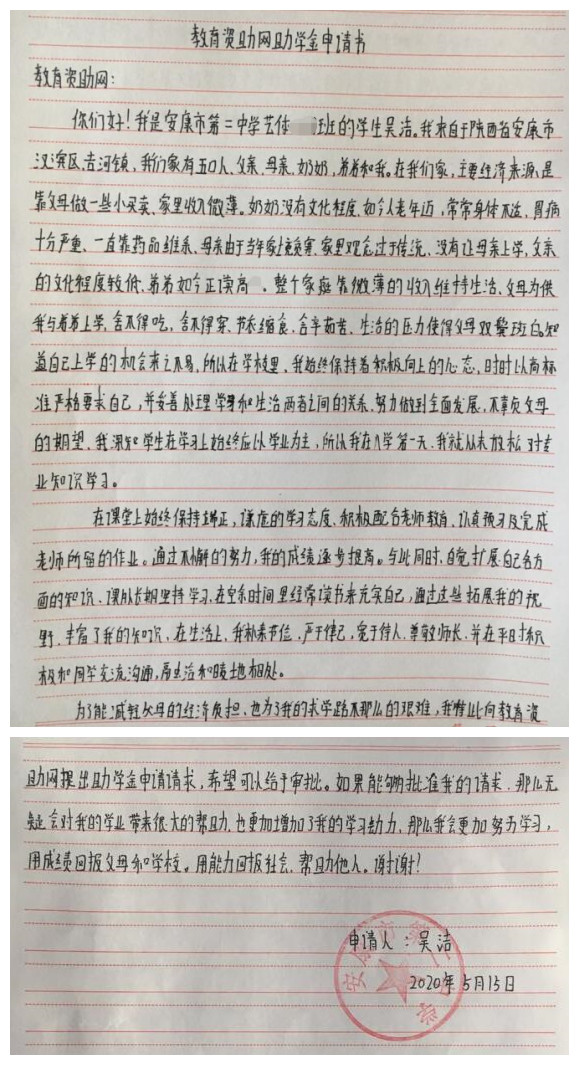 教育资助网助学金申请书
教育资助网：
你们好！我是安康市第二中学艺体班的学生吴洁。我来自于陕西省安康市
汉滨区吉河镇，我们家有五口人，父亲、母亲、奶奶，弟弟和我。在我们家，主要经济来源是
靠父母做一些小买卖，家里收入微薄。奶奶没有文化程度，如今人老年迈，常常身体不适，胃病
十分严重、一直靠药品维系、母亲由于当年家境寒、家里观念过于传统、没有让母亲上学，父亲
的文化程度较低、弟弟如今正读高。整个家庭靠微薄的收入维持生活、父母为供
我与弟弟上学，舍不得吃，舍不得穿、节衣缩食、含辛茹苦、生活的压力使得父母双鬓斑白。知
道自己上学的机会来之不易，所以在学校里、我始终保持着积极向上的心态，时时以高标
准严格要求自己，并妥善处理学习和生活两者之间的关系、努力做到全面发展，不辜负父母
的期望、我深知学生在学习上始终应以学业为主，所以我在入学第一天、我就从未放松对专
业知识学习。
在课堂上始终保持端正，谦虚的学习态度、积极配合老师教育、认真预习及完成
老师所留的作业。通过不懈的努力，我的成绩逐步提高。与此同时，自觉扩展自己各方
面的知识、课外长期坚持学习，在空余时间里经常读书来充实自己，通过这些拓展我的视
野、丰富了我的知识、在生活上、我朴素节俭、严于律己，宽于待人、尊敬师长、并在平时积
极和同学交流沟通，与同学和睦地相处。
为了能减轻父母的经济负担、也为了我的求学路不那么的艰难，我特此向教育资
助网提出助学金申请请求，希望可以给予审批。如果能够批准我的请求、那么无
疑会对我的学业带来很大的帮助、也更加增加了我的学习动力、那么我会更加努力学习，
用成绩回报父母和学校。用能力回报社会、帮助他人。谢谢！
申请人：吴洁
2020年5月15日
安康市第二中学